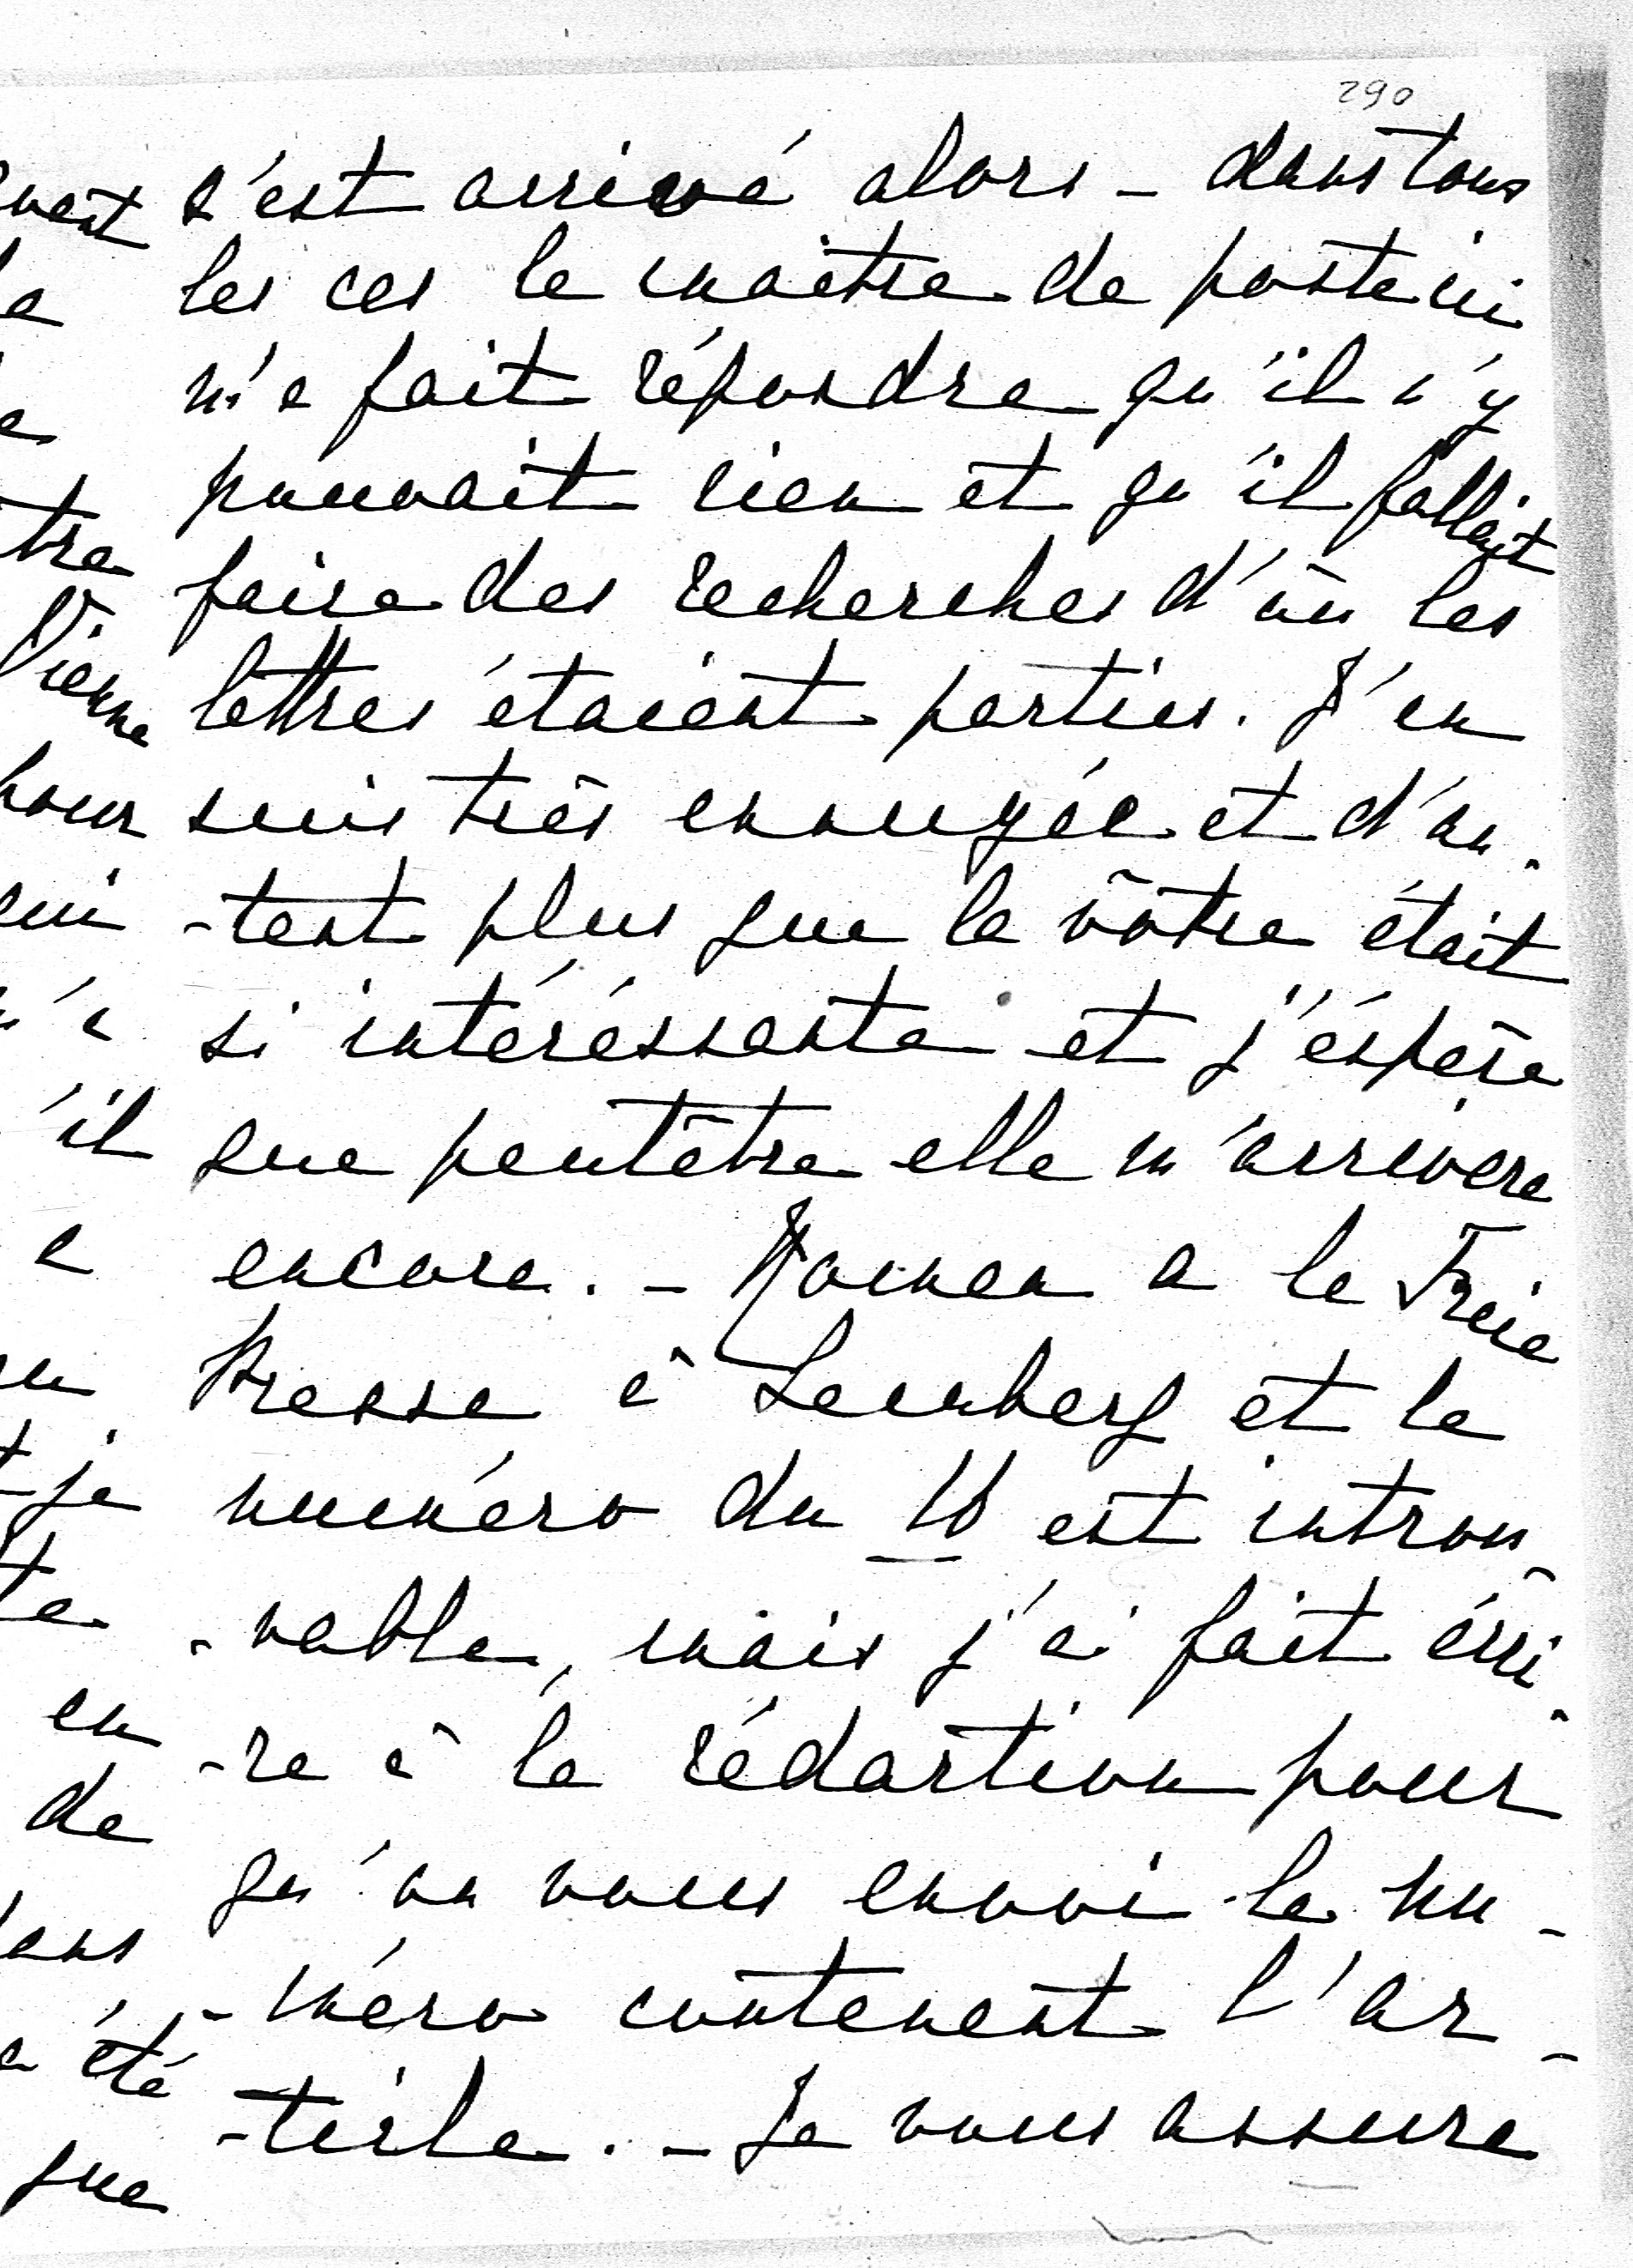 290
s'est arrivé alors - dans tous
les cas le maître de poste ici
m'a fait répondre qu'il n'y
pouvait rien et qu'il fallait
faire des recherches d'où les
lettres étaient parties. J'en
suis très ennuyée et d'au-
-tant plus que la vôtre était
si intéréssante et j'éspère
que peutêtre elle m'arrivera
encore. - Maman a la Freie
Presse à Lemberg et le
numéro du 10 est introu-
-vable, mais j'ai fait écri-
-re à la rédaction pour
qu'on vous envoi le nu-
-méro contenant l'ar-
-ticle. - Je vous assure
vant
tre
Vienne
pour
qui
'il
a
je
te
en
de
été
que